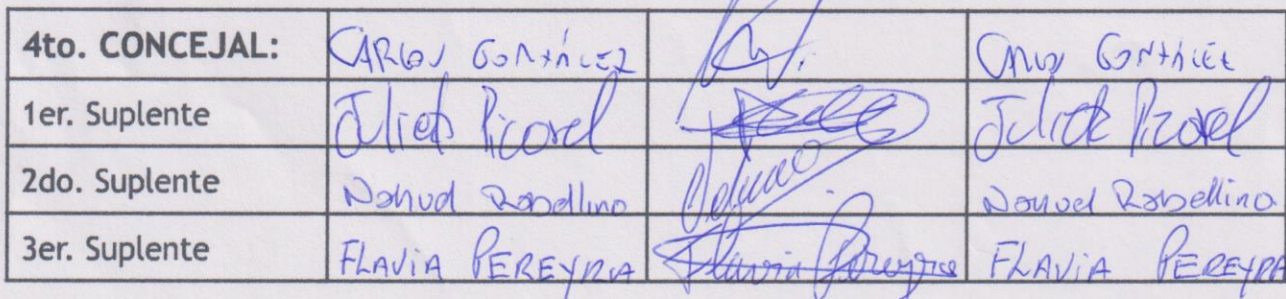 4to. CONCEJAL: CARLOS GONZÁLEZ CARLOS GONZÁLEZ
1er. Suplente Julieta Picovel Julieta Picovel
2do. Suplente Nahuel Robellino Nahuel Robellino
3er. Suplente FLAVIA PEREYRA Flavia Pereyra FLAVIA PEREYRA